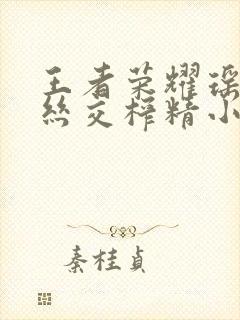 王者荣耀瑶
丝交榨精小
秦桂贞